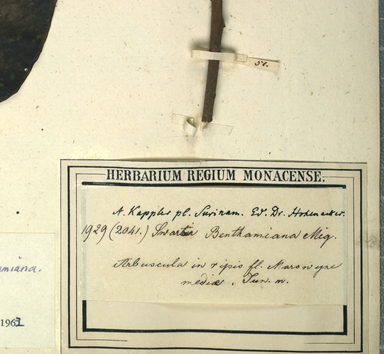 51.
HERBARIUM REGIUM MONACENSE.
A. Kappler pl. Surinam. Ed. Dr. Hohenacker.
1929 (2041.) Swartzia Benthamiana Miq.
Arbuscula in ripis fl. Marowyne
mediæ. Jun. m.
amiana.
196